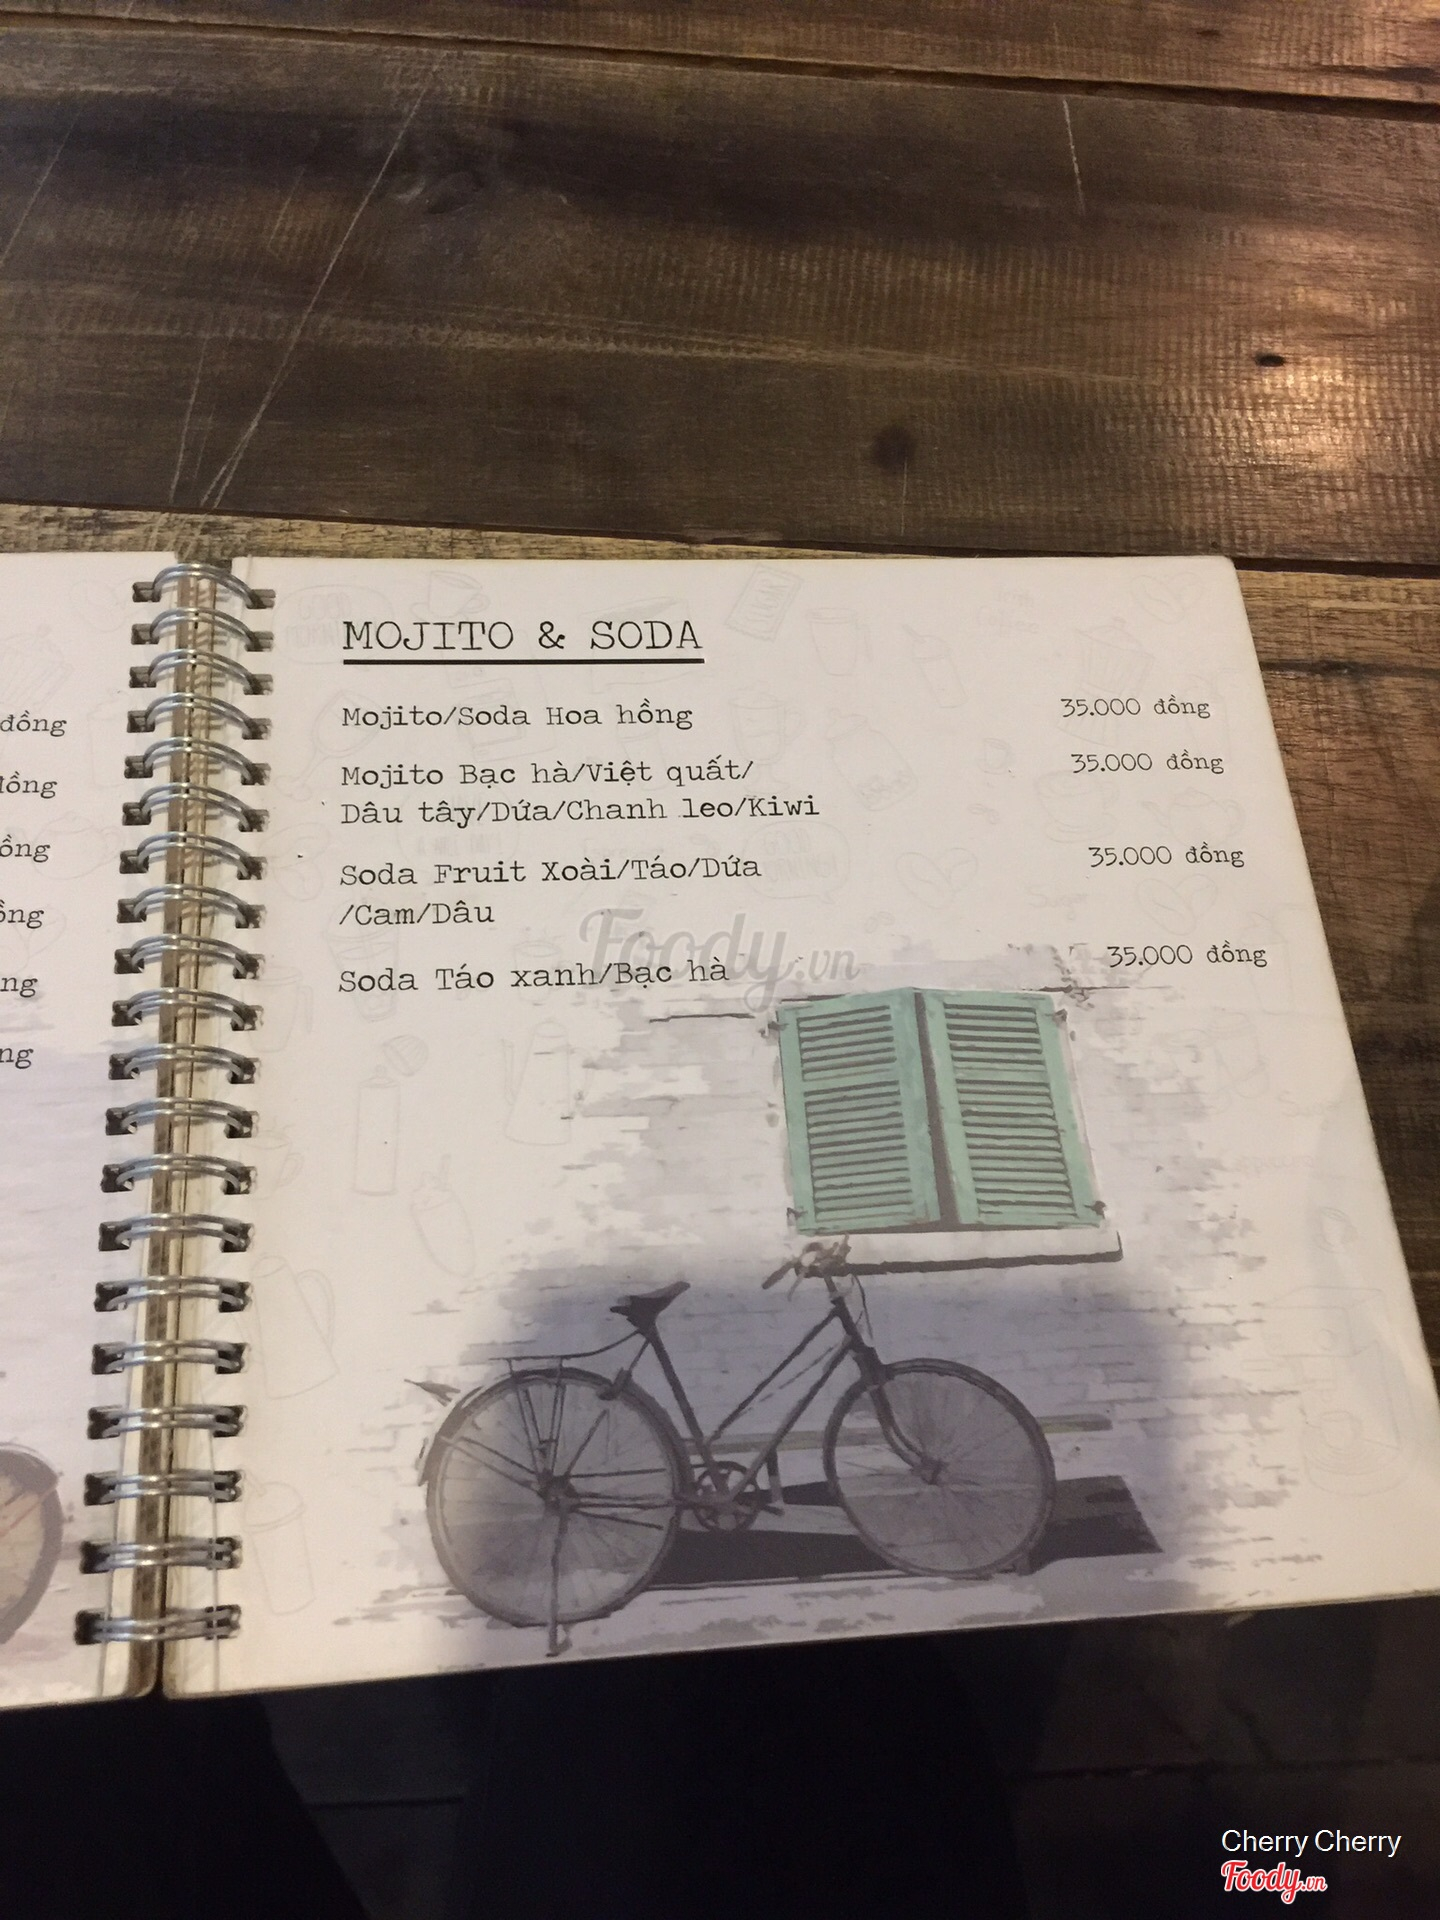 đồng
đồng
MOJITO & SODA
Mojito/Soda Hoa hồng 35.000 đồng
Mojito Bạc hà/Việt quất/ 35.000 đồng
Dâu tây/Dứa/Chanh leo/Kiwi
Soda Fruit Xoài/Táo/Dứa 35.000 đồng
/Cam/Dâu
Soda Táo xanh/Bạc hà 35.000 đồng
Foody.vn
Cherry Cherry
Foody.vn